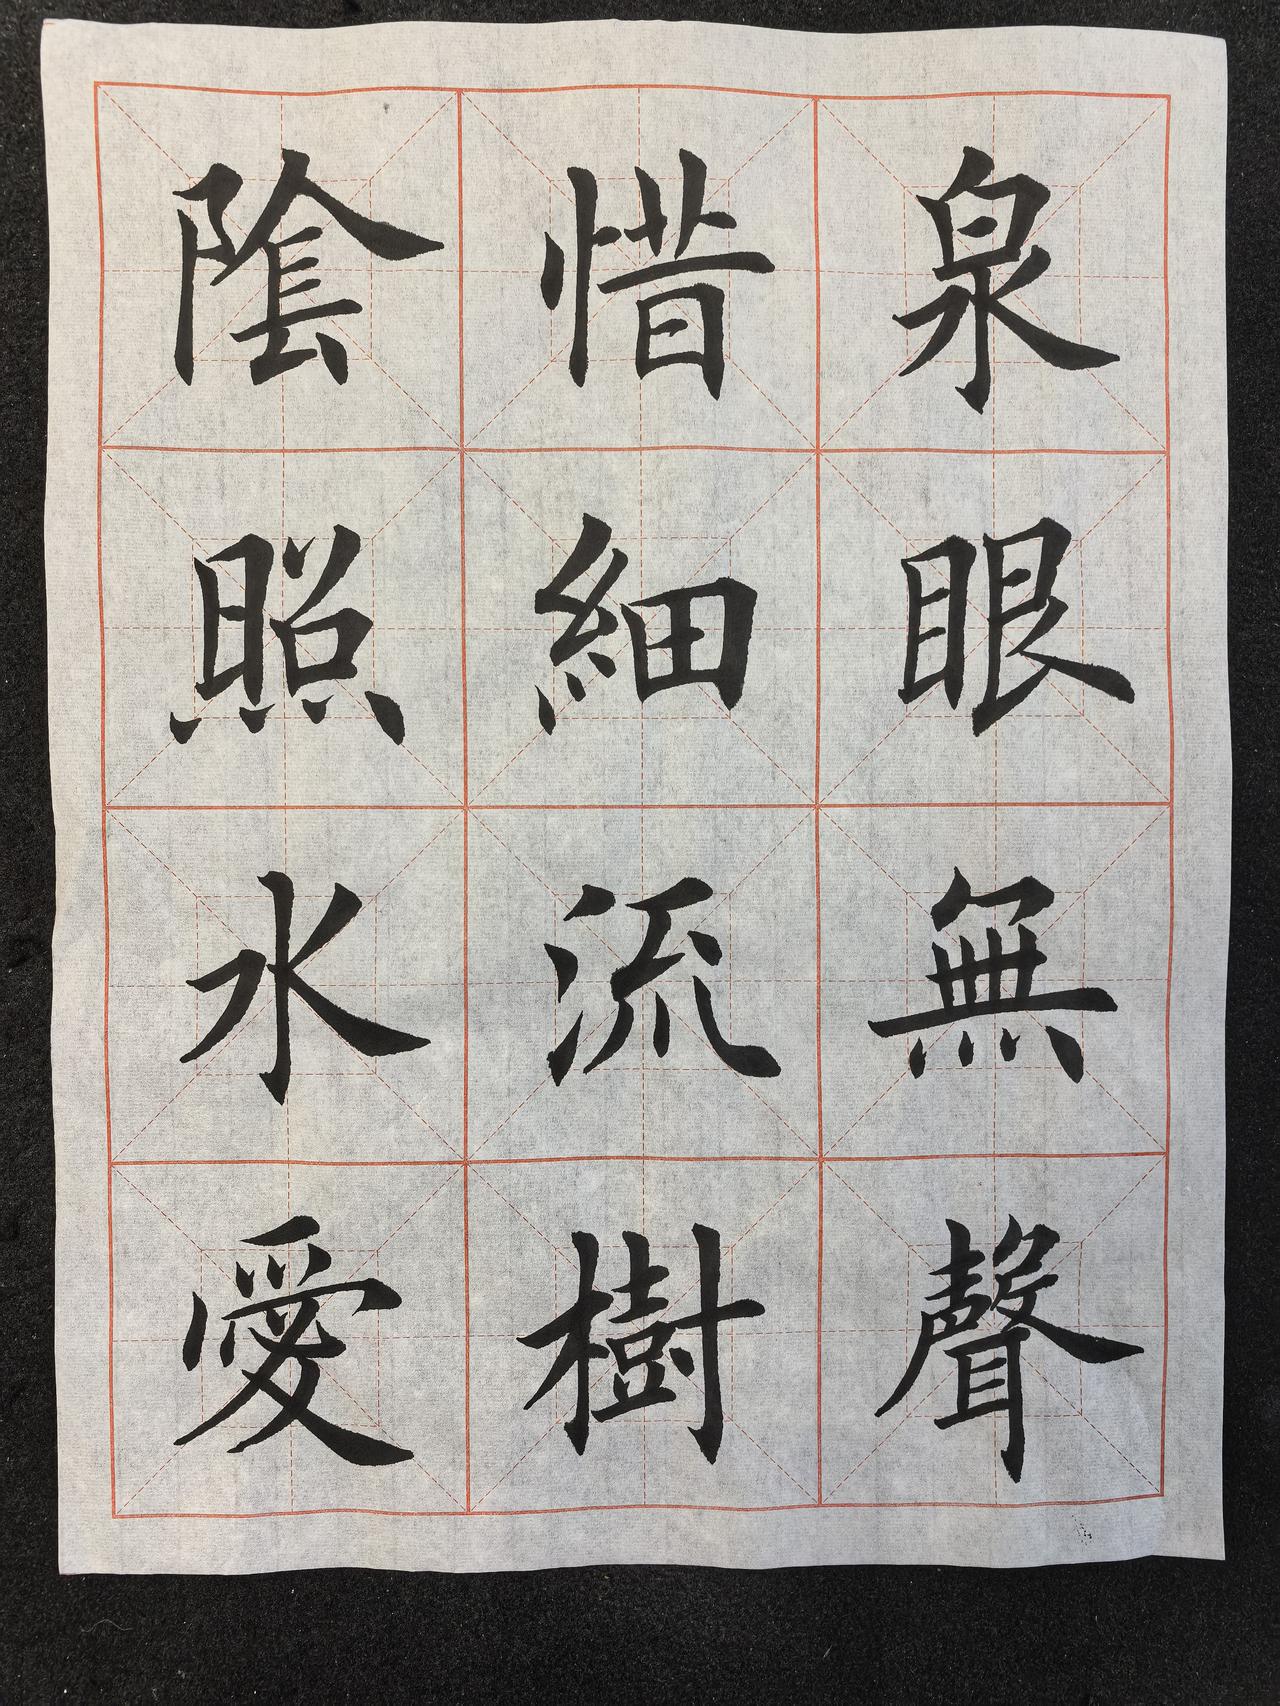 泉眼無聲
惜細流樹
陰照水愛